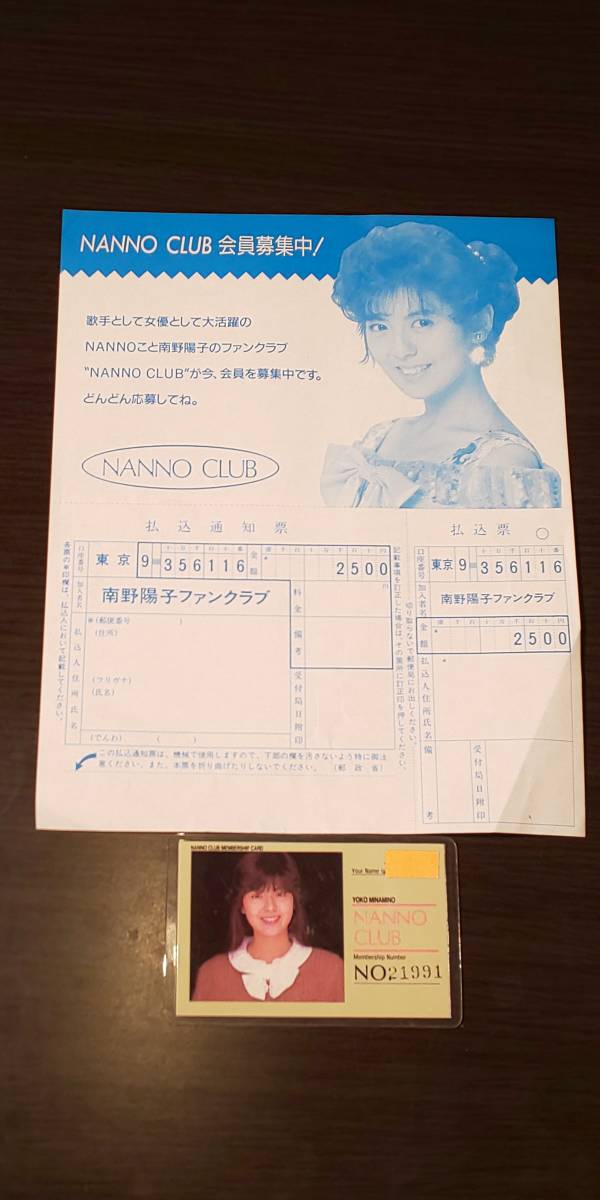 NANNO CLUB 会員募集中!
歌手として女優として大活躍の
NANNOこと南野陽子のファンクラブ
"NANNO CLUB"が今、会員を募集中です。
どんどん応募してね。
NANNO CLUB
払込通知票
各票の※印欄は、払込人において記載してください。
口座番号
東京 9
十万千百十番
356116
金額
億千百十万千百十円
2500
加入者名
南野陽子ファンクラブ
料金
円
払込人住所氏名
※(郵便番号 )
(住所)
(フリガナ)
(氏名)
(でんわ) ( )
備考
受付局日附印
記載事項を訂正した場合は、その箇所に訂正印を押してください。
切り取らないで郵便局にお出しください。
この払込通知票は、機械で使用しますので、下部の欄を汚さないよう特に御注
意ください。また、本票を折り曲げたりしないでください。 (郵政省)
払込票
口座番号
東京 9
十万千百十番
356116
加入者名
南野陽子ファンクラブ
金額
億千百十万千百十円
2500
払込人住所氏名
※
備考
受付局日附印
NANNO CLUB MEMBERSHIP CARD
Your Name is
YOKO MINAMINO
NANNO
CLUB
Membership Number
NO21991